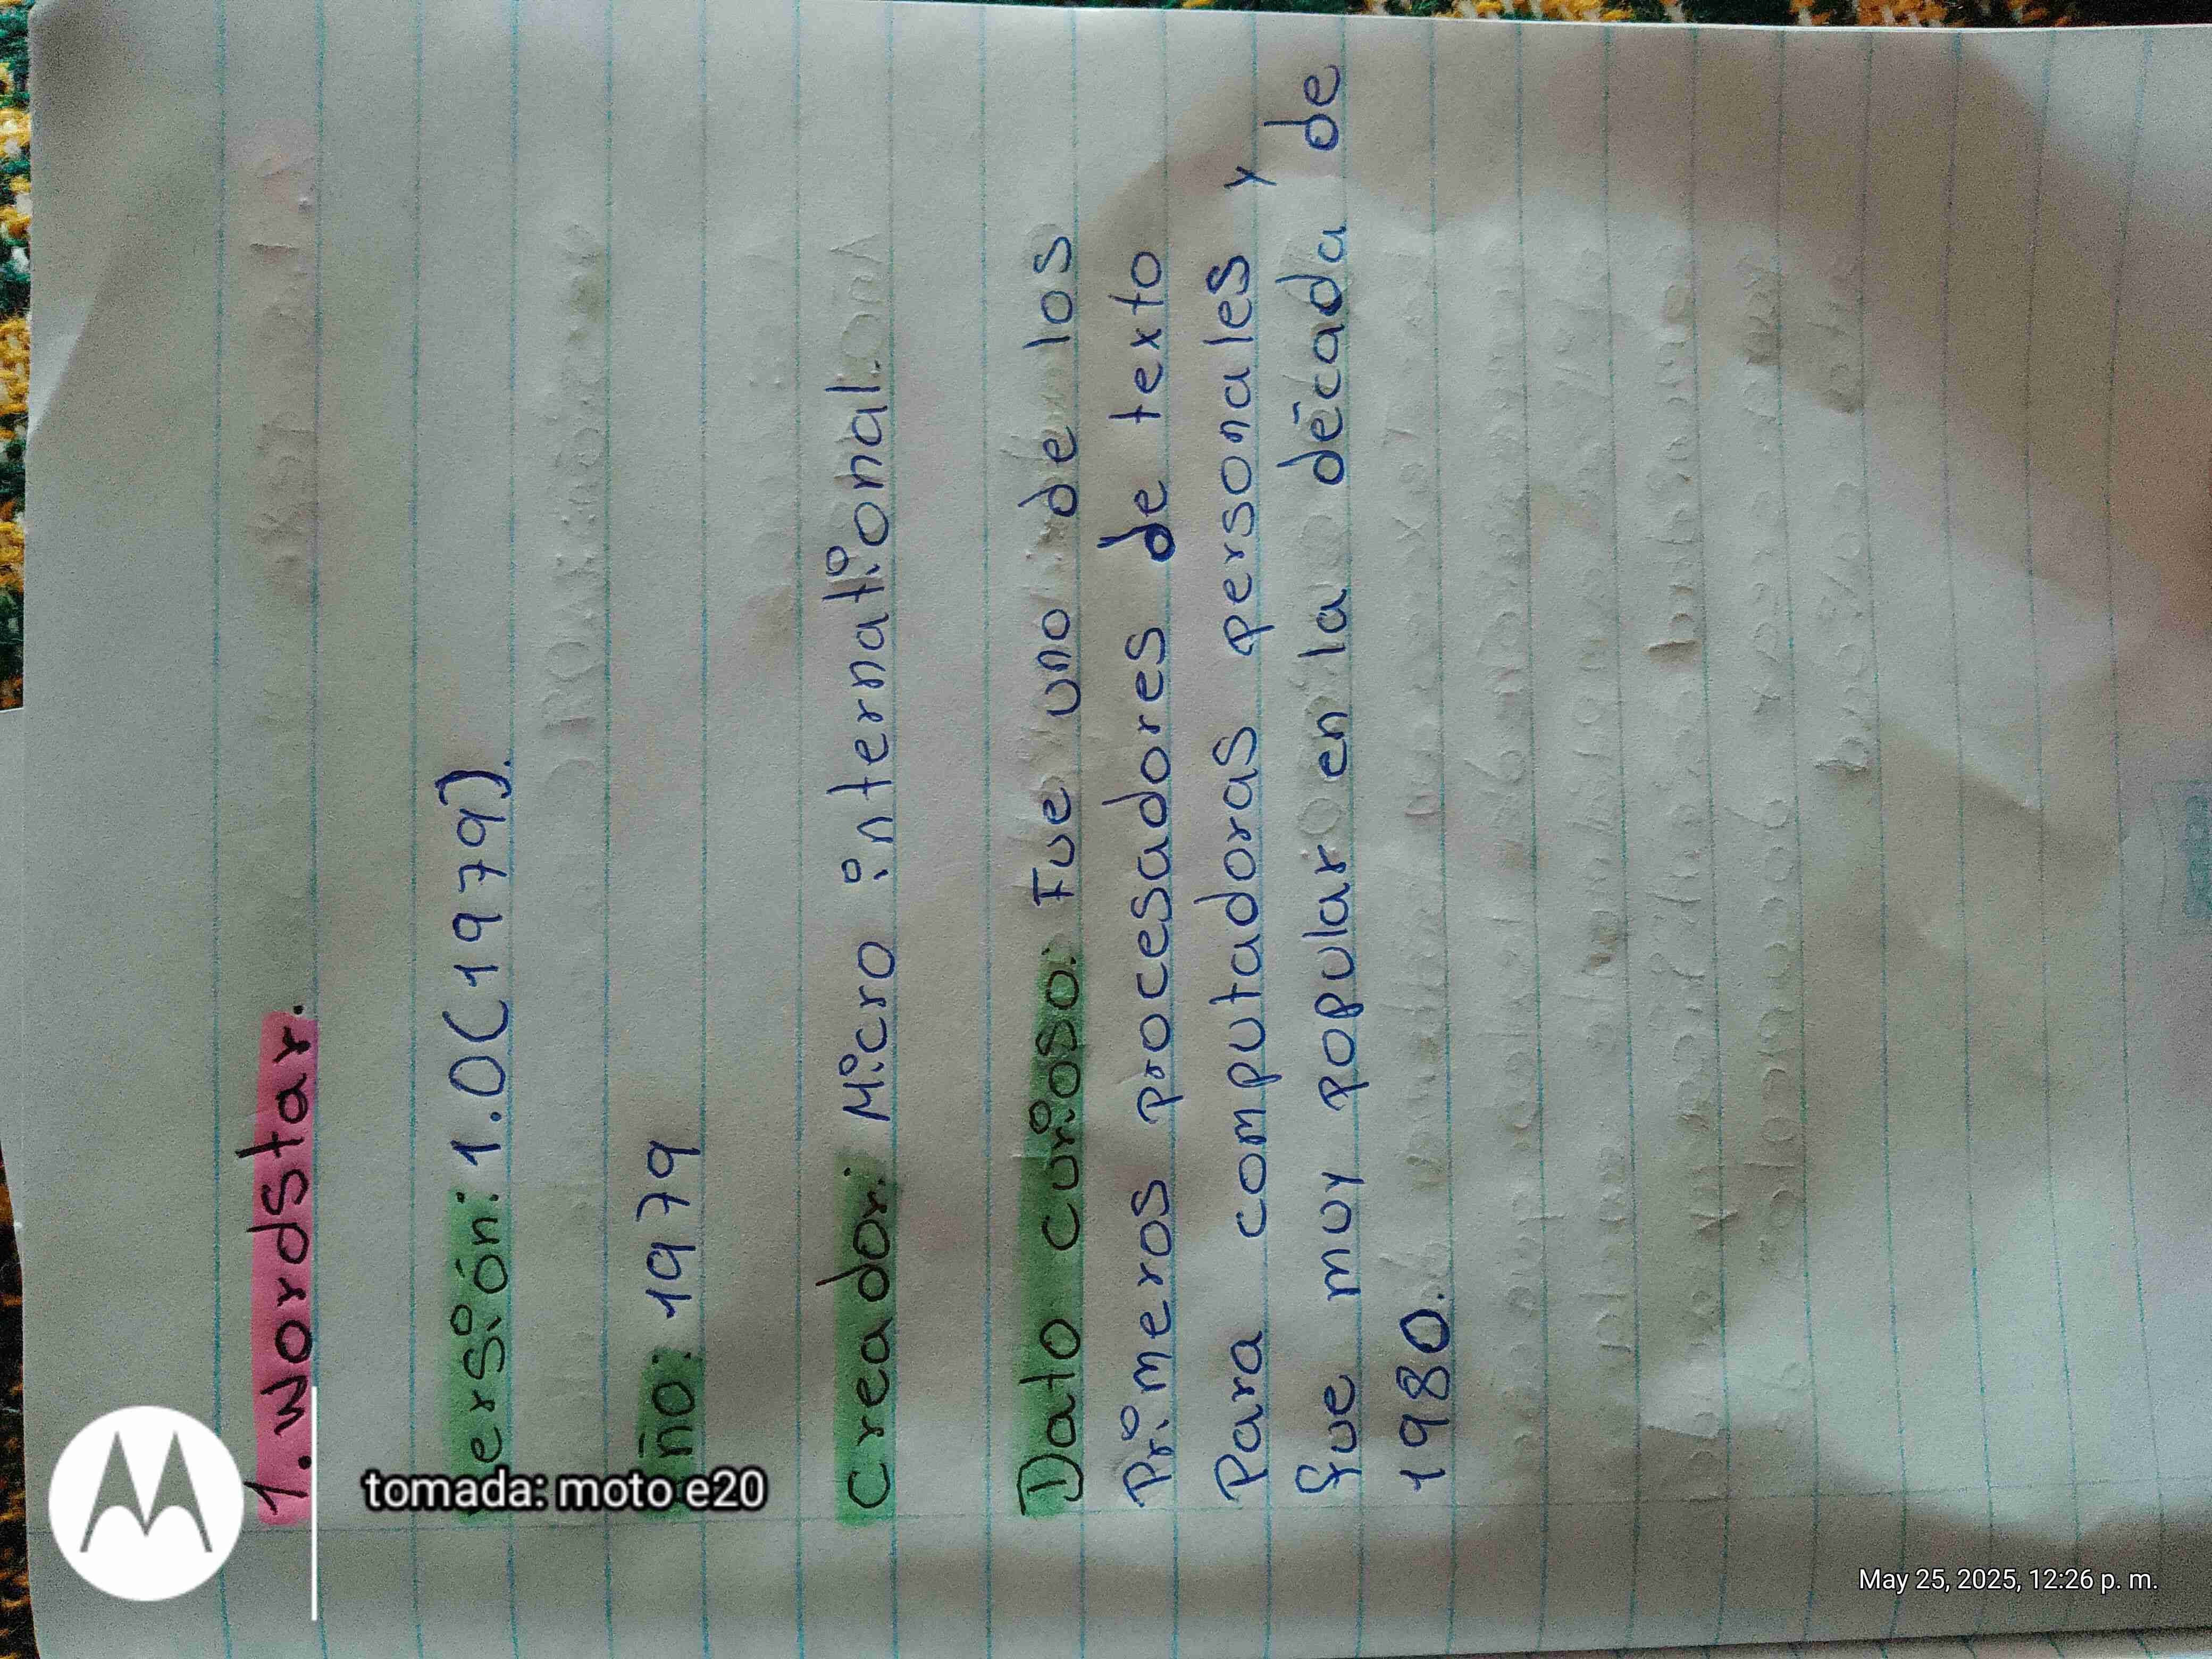 1. WordStar.
ersión: 1.0(1979).
ño: 1979
Creador: Micro international.
Dato curioso: Fue uno de los
Primeros procesadores de texto
Para computadoras personales y
fue muy popular en la década de
1980.
tomada: moto e20
May 25, 2025, 12:26 p. m.